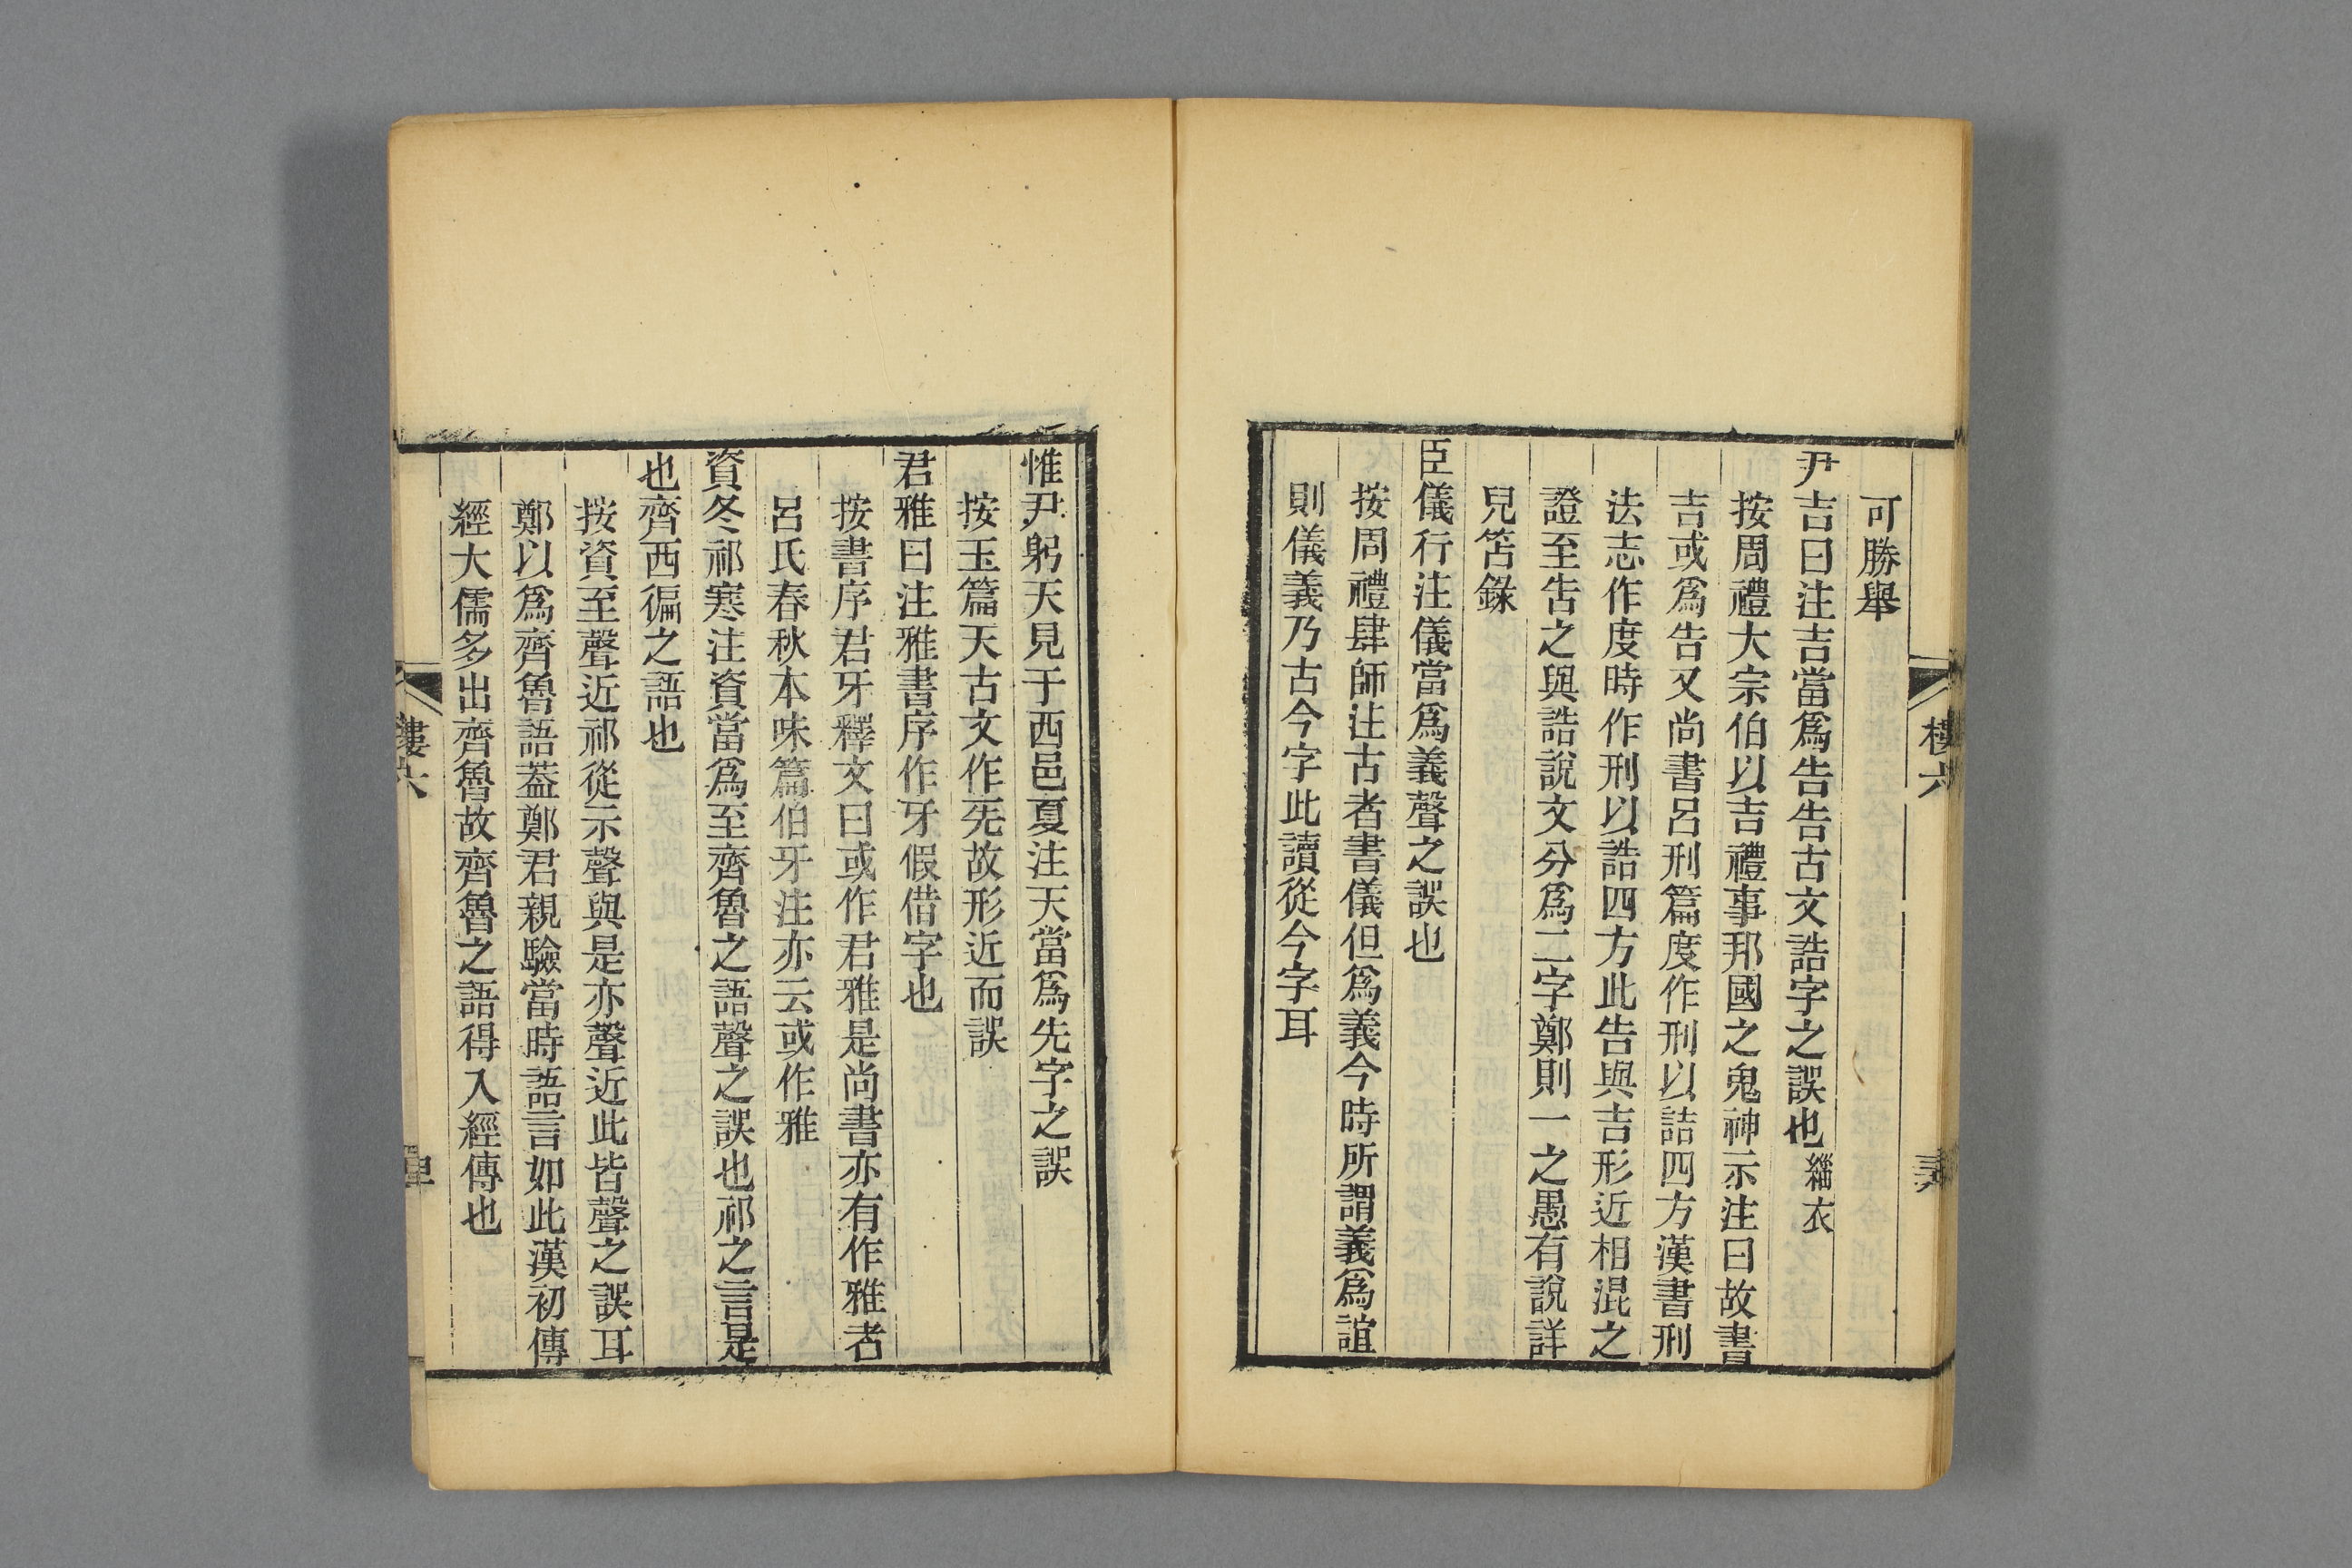 可勝舉
尹吉曰注吉當爲告告古文誥字之誤也緇衣
按周禮大宗伯以吉禮事邦國之鬼神示注曰故書
吉或爲告又尚書呂刑篇度作刑以詰四方漢書刑
法志作度時作刑以誥四方此告與吉形近相混之
證至告之與誥說文分爲二字鄭則一之愚有說詳
兒笘錄
臣儀行注儀當爲義聲之誤也
按周禮肆師注古者書儀但爲義今時所謂義爲誼
則儀義乃古今字此讀從今字耳
惟尹躬天見于西邑夏注天當爲先字之誤
按玉篇天古文作兂故形近而誤
君雅曰注雅書序作牙假借字也
按書序君牙釋文曰或作君雅是尚書亦有作雅者
呂氏春秋本味篇伯牙注亦云或作雅
資冬祁寒注資當爲至齊魯之語聲之誤也祁之言是
也齊西偏之語也
按資至聲近祁從示聲與是亦聲近此皆聲之誤耳
鄭以爲齊魯語葢鄭君親驗當時語言如此漢初傳
經大儒多出齊魯故齊魯之語得入經傳也
樓六